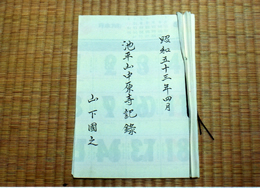 昭和五十三年四月
池平山中原寺記録
山下國之